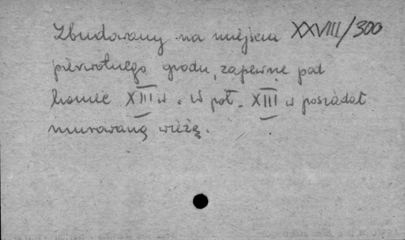 Zbudowany na miejscu XXVIII/300
pierwotnego grodu, zapewne pod
koniec XIII w. W poł. XIII w posiadał
murowaną wieżę.